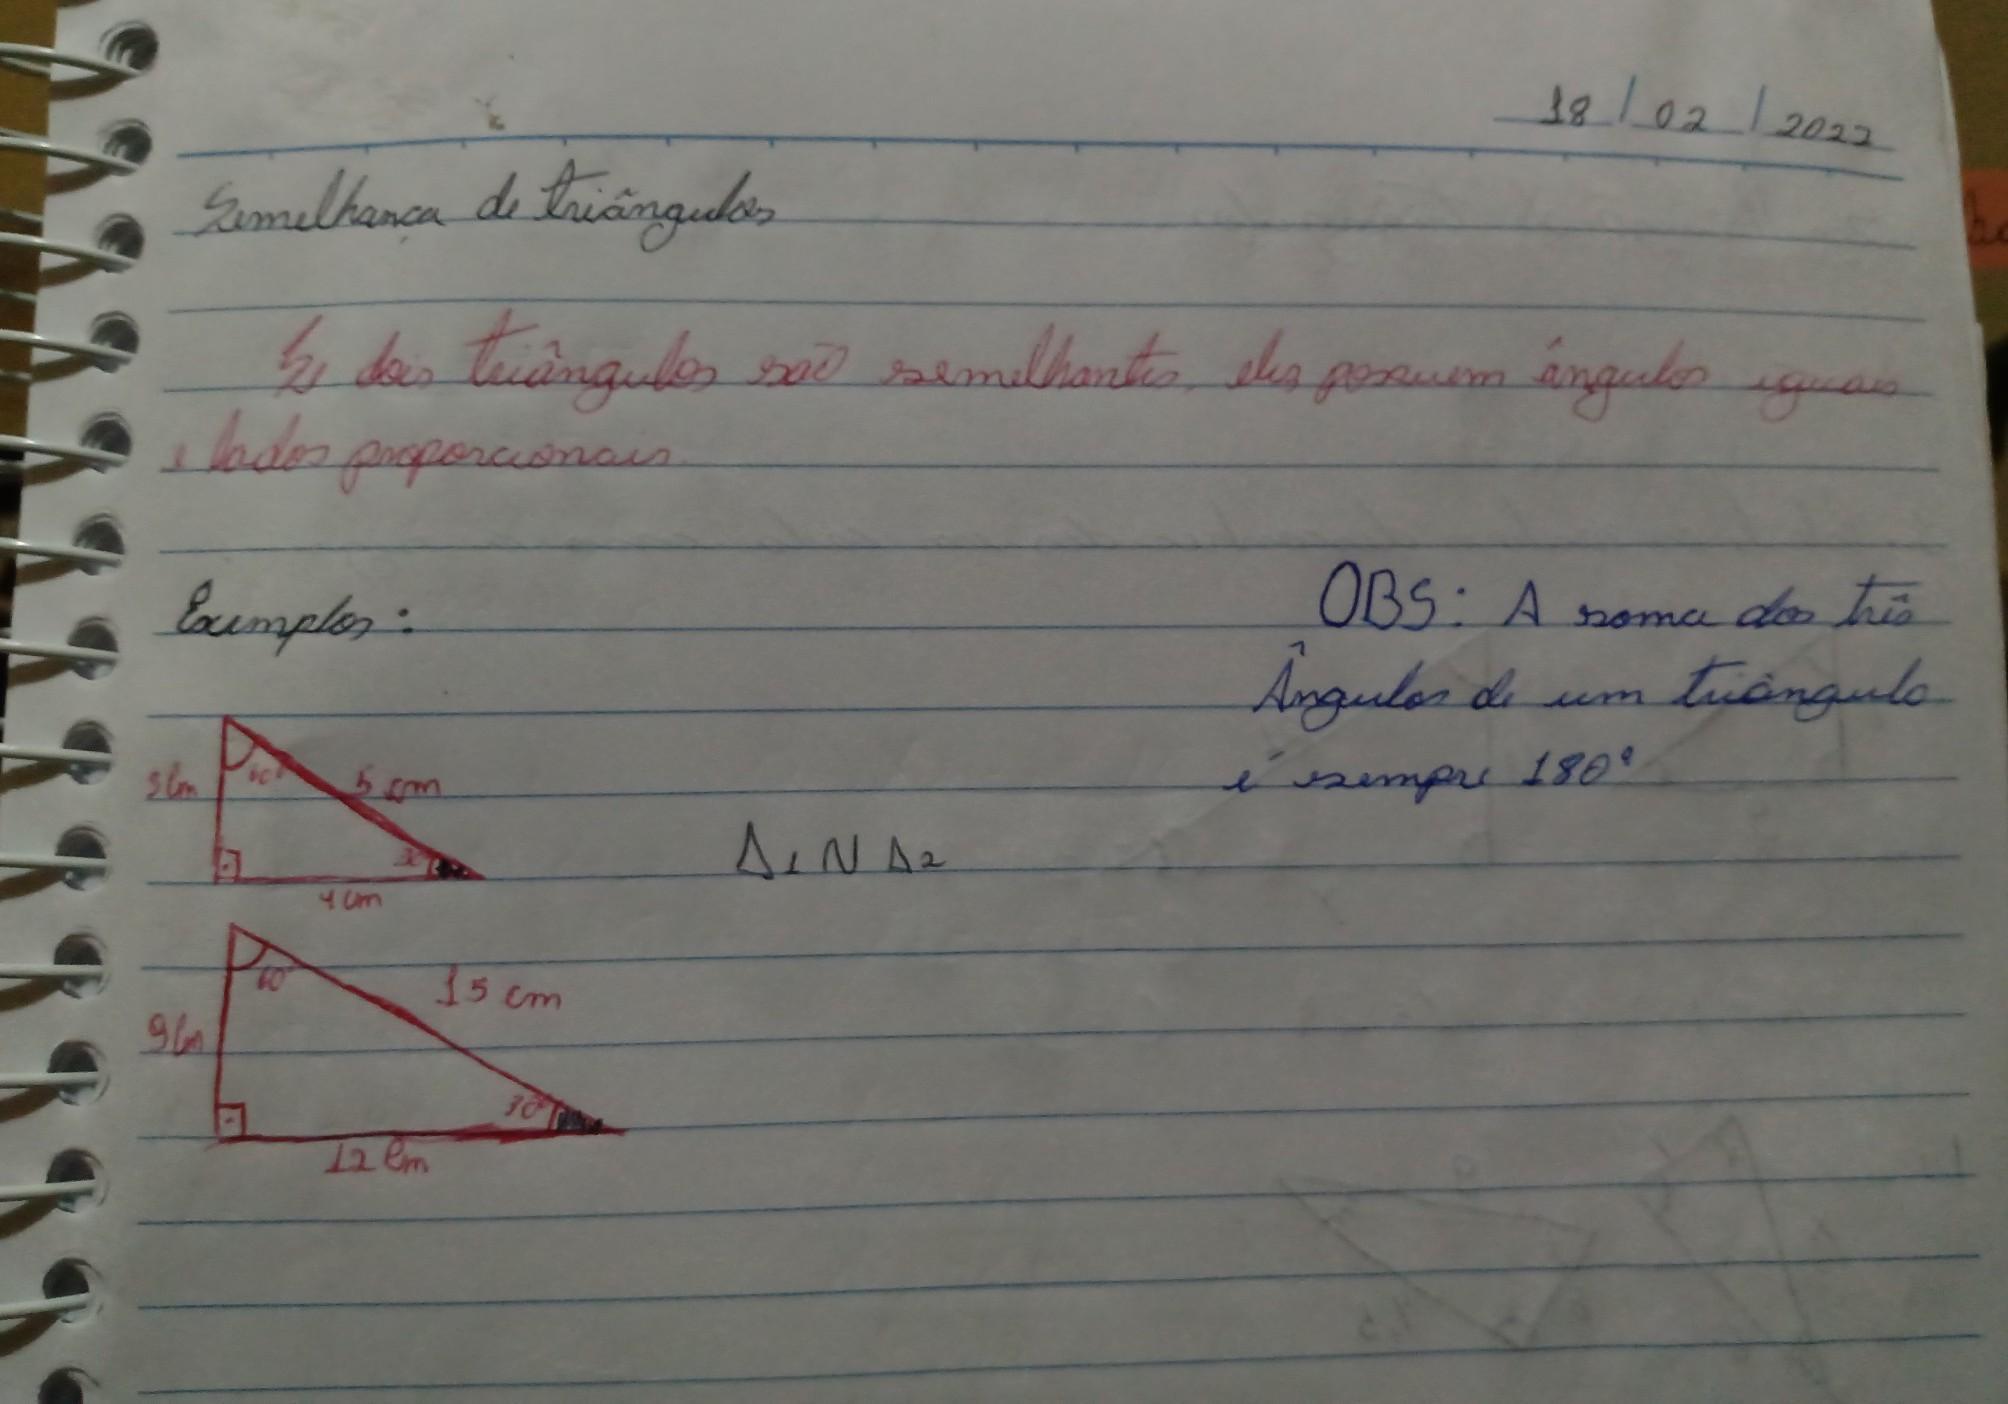 18 / 02 / 2022
Semelhança de triângulos
Se dois triângulos são semelhantes, eles possuem ângulos iguais
e lados proporcionais.
Exemplos:
OBS: A soma dos três
Ângulos de um triângulo
é sempre 180°
3 cm
60°
5 cm
30°
4 cm
Δ1 N Δ2
60°
15 cm
9 cm
30°
12 cm